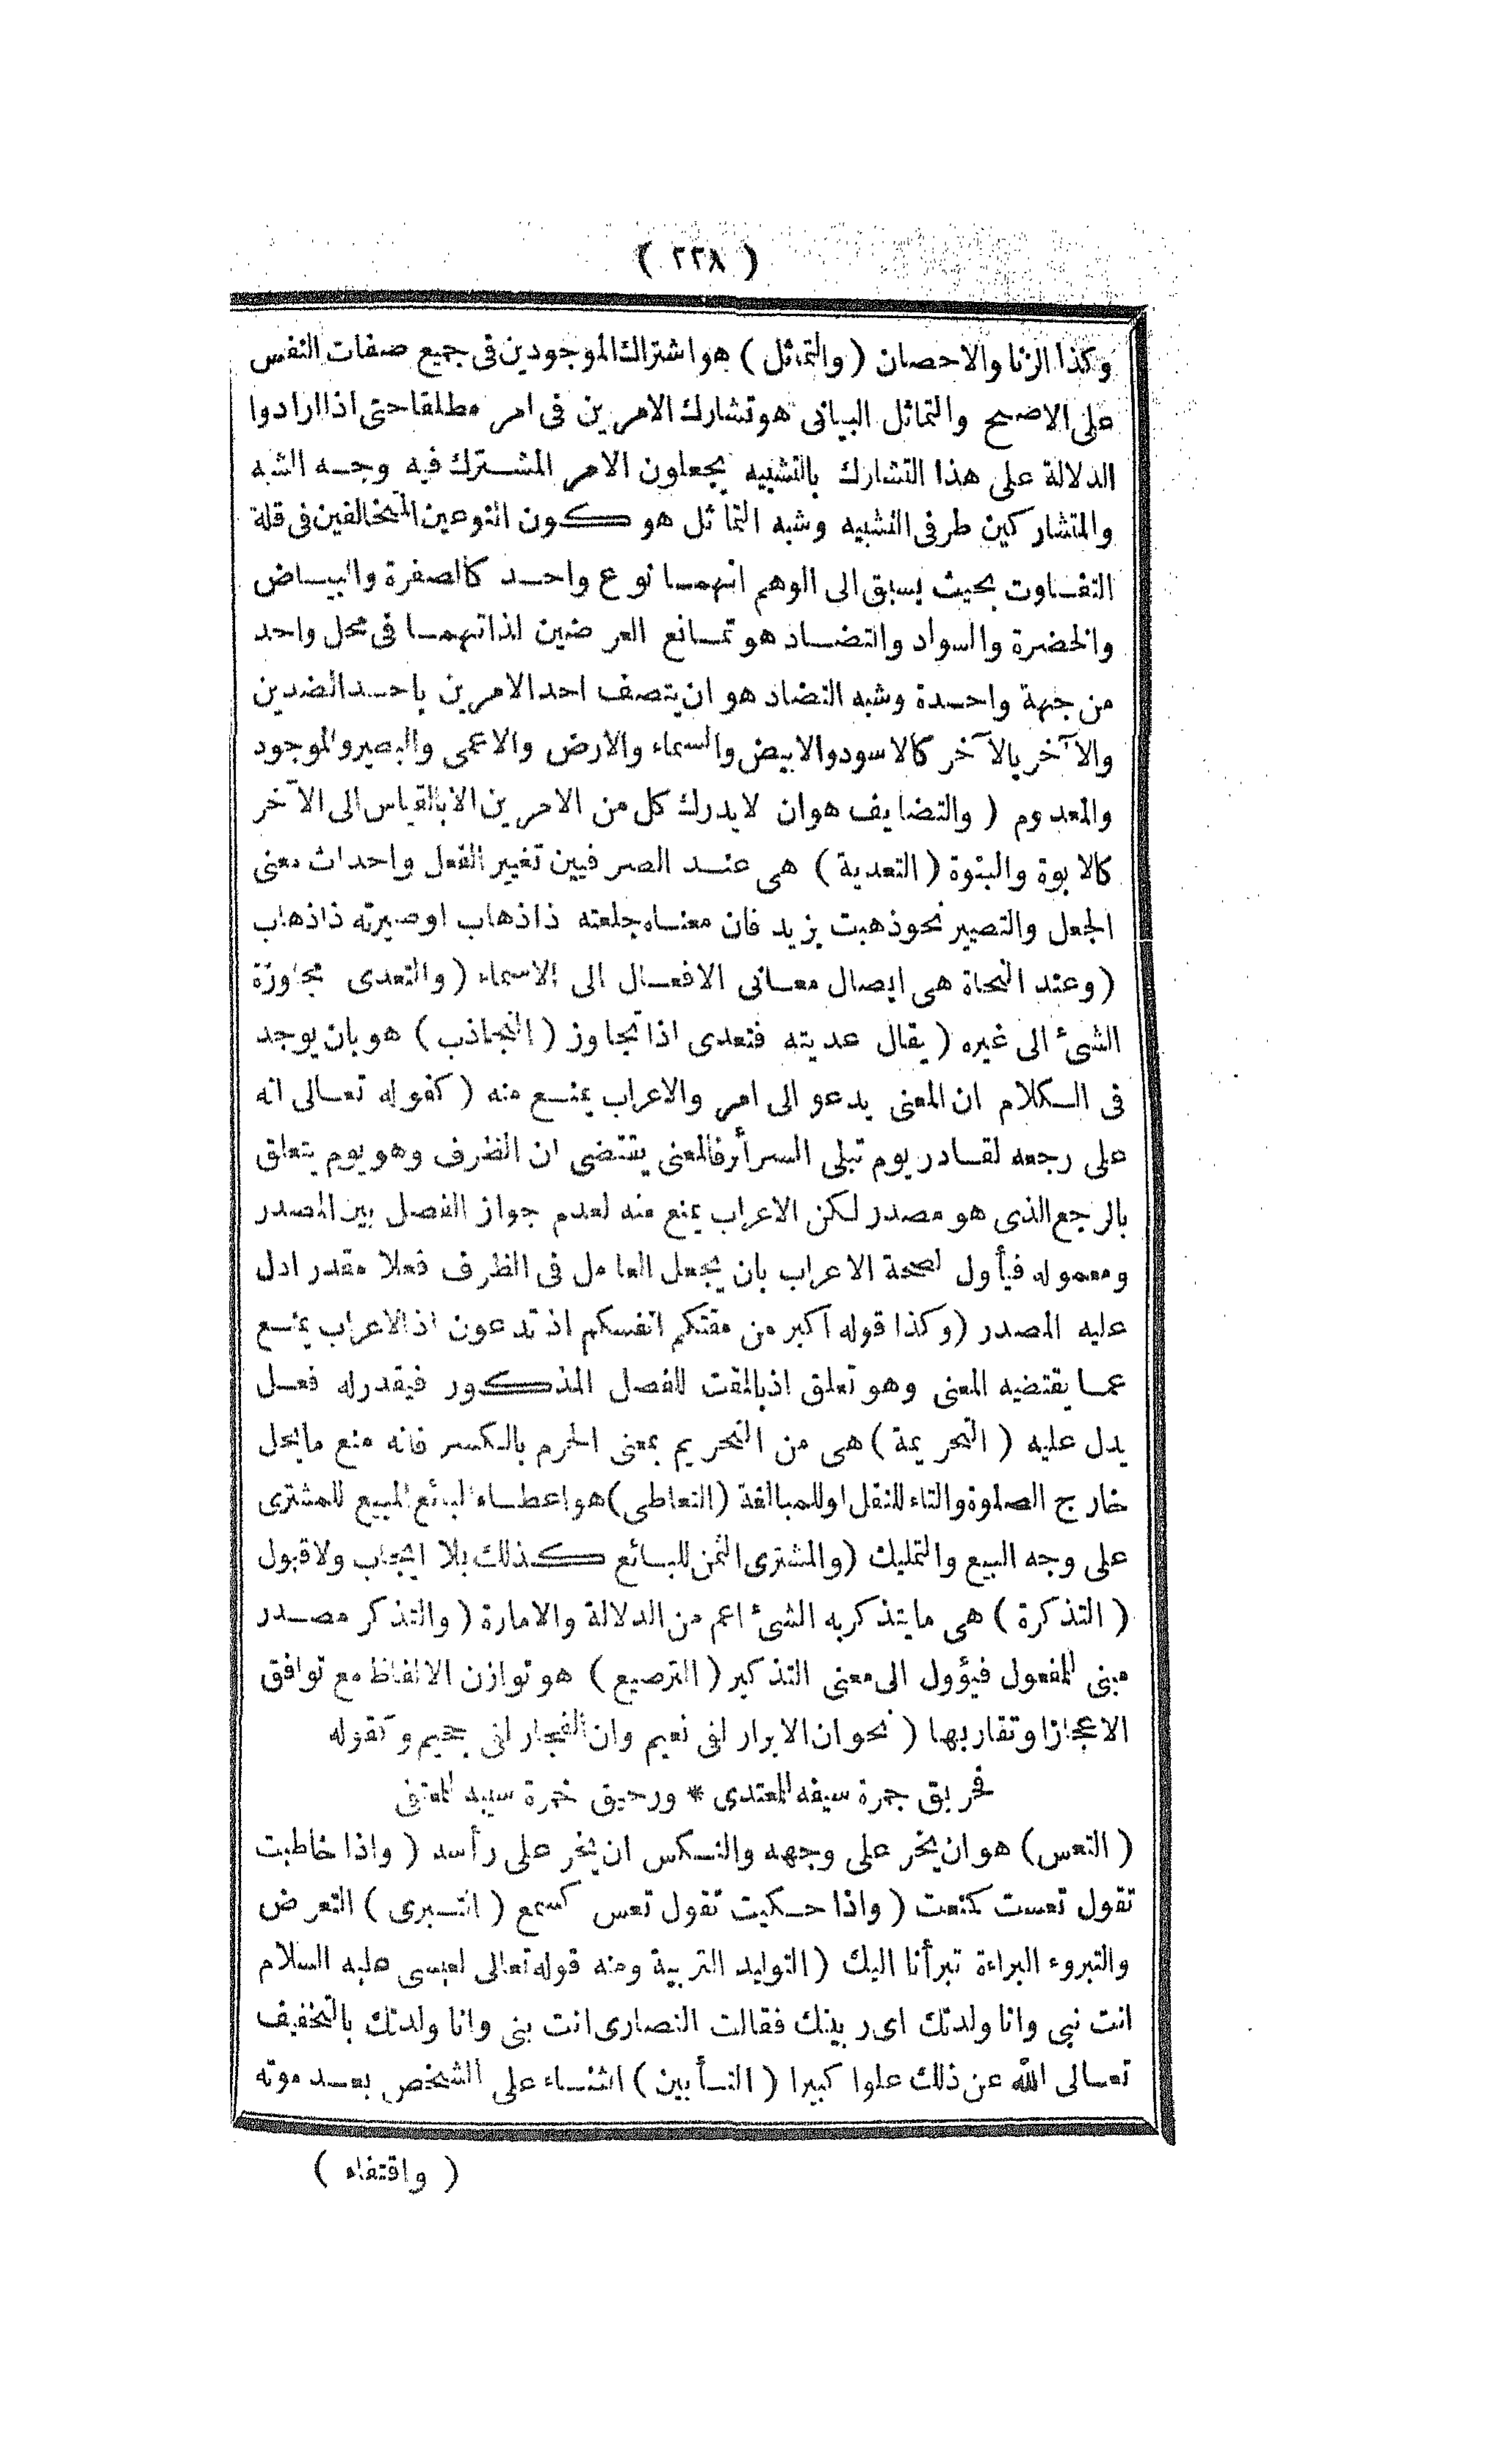 ( ٢٢٨ )
وكذا الزنا والاحصان ( والتماثل ) هو اشتراك الموجودين فى جميع صفات النفس
على الاصح والتماثل البيانى هو تشارك الامرين فى امر مطلقا حتى اذا ارادوا
الدلالة على هذا التشارك بالتشبيه يجعلون الامر المشترك فيه وجه الشبه
والمتشاركين طرفى التشبيه وشبه التماثل هو كون النوعين المتخالفين فى قلة
التفاوت بحيث يسبق الى الوهم انهما نوع واحد كالصفرة والبياض
والخضرة والسواد والتضاد هو تمانع العرضين لذاتهما فى محل واحد
من جهة واحدة وشبه التضاد هو ان يتصف احد الامرين باحد الضدين
والآخر بالآخر كالاسود والابيض والسماء والارض والاعمى والبصير والموجود
والمعدوم ( والتضايف هو ان لا يدرك كل من الامرين الا بالقياس الى الآخر
كالابوة والبنوة ( التعدية ) هى عند الصرفيين تغيير الفعل واحداث معنى
الجعل والتصيير نحو ذهبت بزيد فان معناه جعلته ذا ذهاب او صيرته ذا ذهاب
( وعند النحاة هى ايصال معانى الافعال الى الاسماء ( والتعدى مجاوزة
الشئ الى غيره ( يقال عديته فتعدى اذا تجاوز ( التجاذب ) هو بان يوجد
فى الكلام ان المعنى يدعو الى امر والاعراب يمنع منه ( كقوله تعالى انه
على رجعه لقادر يوم تبلى السرأر فالمعنى يقتضى ان الظرف وهو يوم يتعلق
بالرجع الذى هو مصدر لكن الاعراب يمنع منه لعدم جواز الفصل بين المصدر
ومعموله فيأول لصحة الاعراب بان يجعل العامل فى الظرف فعلا مقدرا دل
عليه المصدر ( وكذا قوله اكبر من مقتكم انفسكم اذ تدعون اذ الاعراب يمنع
عما يقتضيه المعنى وهو تعلق اذ بالمقت للفصل المذكور فيقدر له فعل
يدل عليه ( التحريمة ) هى من التحريم بمعنى الحرم بالكسر فانه منع ما يحل
خارج الصلوة والتاء للنقل او للمبالغة ( التعاطى ) هو اعطاء البائع المبيع للمشترى
على وجه البيع والتمليك ( والمشترى الثمن للبائع كذلك بلا ايجاب ولا قبول
( التذكرة ) هى ما يتذكر به الشئ اعم من الدلالة والامارة ( والتذكر مصدر
مبنى للمفعول فيؤول الى معنى التذكير ( الترصيع ) هو توازن الالفاظ مع توافق
الاعجاز او تقاربها ( نحو ان الابرار لفى نعيم وان الفجار لفى جحيم وكقوله
فحريق جمرة سيفه للمعتدى * ورحيق خمرة سيبه للمعتفى
( التعس ) هو ان يخر على وجهه والنكس ان يخر على رأسه ( واذا خاطبت
تقول تعست كمنعت ( واذا حكيت تقول تعس كسمع ( التبرى ) التعرض
والتبروء البراءة تبرأنا اليك ( التوليد التربية ومنه قوله تعالى لعيسى عليه السلام
انت نبى وانا ولدتك اى ربيتك فقالت النصارى انت بنى وانا ولدتك بالتخفيف
تعالى الله عن ذلك علوا كبيرا ( التأبين ) الثناء على الشخص بعد موته
( واقتفاء )